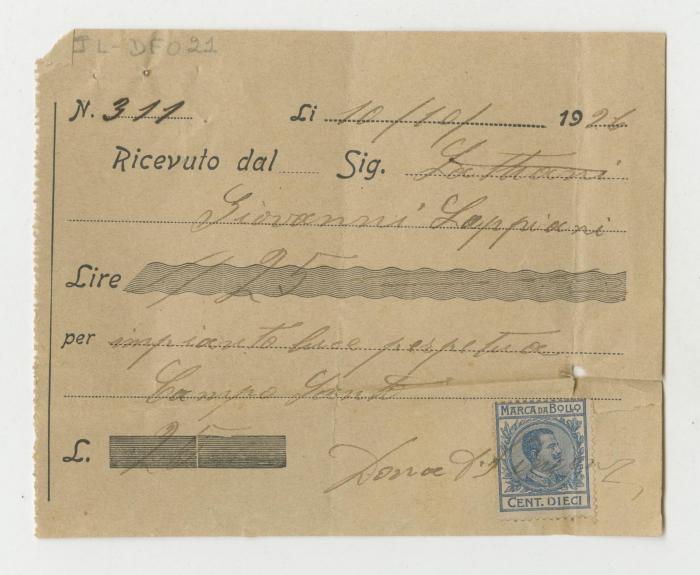 JL-DF021
N. 311 Li 10/10/ 1926
Ricevuto dal Sig. Lattani
Giovanni Lappiani
Lire # 25
per impianto luce perpetua
Campo Santo
MARCA DA BOLLO
L. 25
Dona
CENT. DIECI